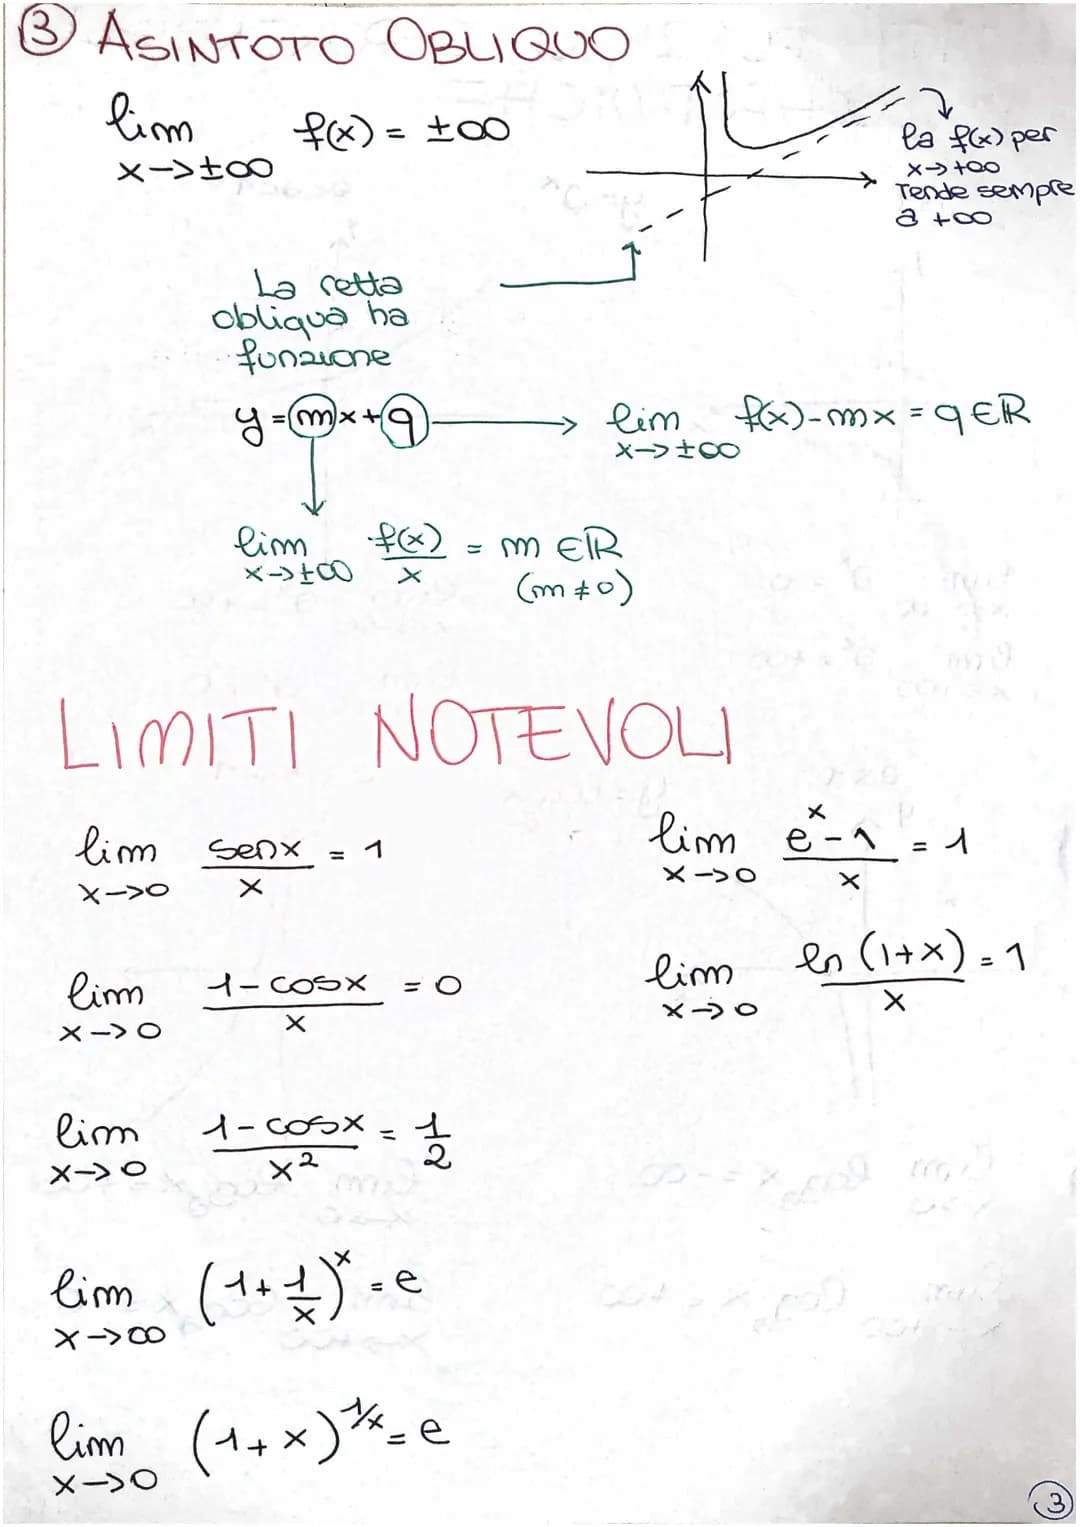 ③ ASINTOTO OBLIQUO
lim f(x) = ±∞
x->±∞
la f(x) per
x->+∞
Tende sempre
a +∞
La retta
obliqua ha
funzione
y = mx+q -> lim f(x)-mx = q ∈ℝ
x->±∞
lim f(x)/x = m ∈ℝ
x->±∞ (m≠0)
LIMITI NOTEVOLI
lim senx/x = 1
x->0
lim (e^x-1)/x = 1
x->0
lim (1-cosx)/x = 0
x->0
lim ln(1+x)/x = 1
x->0
lim (1-cosx)/x² = 1/2
x->0
lim (1+1/x)^x = e
x->∞
lim (1+x)^1/x = e
x->0
③